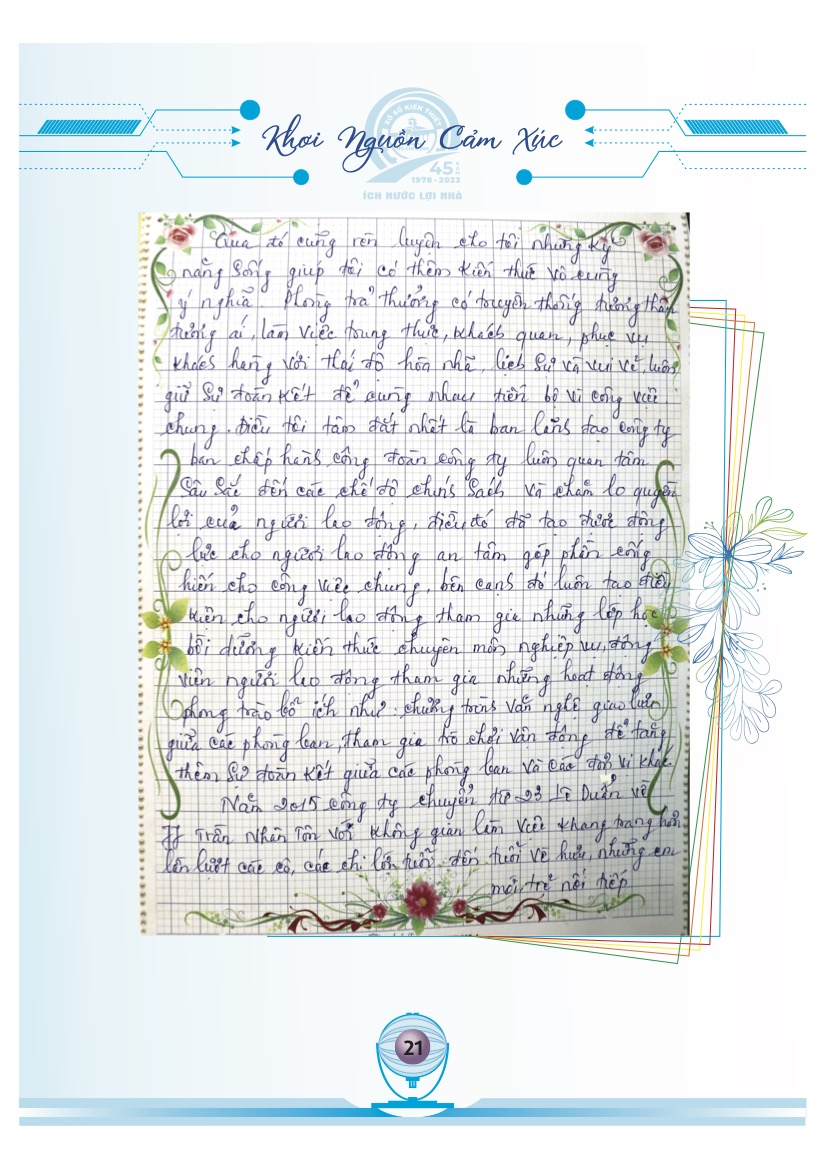 XỔ SỐ KIẾN THIẾT
Khơi Nguồn Cảm Xúc
45 NĂM
1978 - 2023
ÍCH NƯỚC LỢI NHÀ
Qua đó cũng rèn luyện cho tôi những kỹ
năng sống giúp tôi có thêm kiến thức vô cùng
ý nghĩa. Phòng trả thưởng có truyền thống tương thân
tương ái, làm việc trung thực, khách quan, phục vụ
khách hàng với thái độ hòa nhã, lịch sự và vui vẻ, luôn
giữ sự đoàn kết để cùng nhau tiến bộ vì công việc
chung. Điều tôi tâm đắt nhất là ban lãnh đạo công ty
ban chấp hành công đoàn công ty luôn quan tâm
sâu sắc đến các chế độ chính sách và chăm lo quyền
lợi của người lao động, điều đó đã tạo được động
lực cho người lao động an tâm góp phần cống
hiến cho công việc chung, bên cạnh đó luôn tạo điều
kiện cho người lao động tham gia những lớp học
bồi dưỡng kiến thức chuyên môn nghiệp vụ, động
viên người lao động tham gia những hoạt động
phong trào bổ ích như: chương trình văn nghệ giao lưu
giữa các phòng ban, tham gia trò chơi vận động để tăng
thêm sự đoàn kết giữa các phòng ban và các đơn vị khác.
Năm 2015 công ty chuyển từ 23 Lê Duẩn về
77 Trần Nhân Tôn với không gian làm việc khang trang hơn
lần lượt các cô, các chị lớn tuổi đến tuổi về hưu, những em
mới, trẻ nối tiếp
21